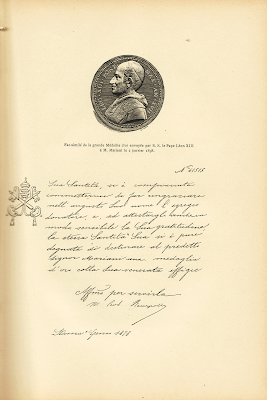 Fac-similé de la grande Médaille d'or envoyée par S. S. le Pape Léon XIII
à M. Mariani le 2 janvier 1898.
Sua Santità si è compiaciuta
commettermi di far ringraziare
nell'augusto Suo nome l'egregio
donatore e, ad attestargli in
modo sensibile la Sua gratitudine,
la stessa Santità Sua si è pure
degnata di destinare al predetto
Signor Mariani una medaglia
d'oro colla Sua venerata effigie
Affmo per servirla
M. Card. Rampolla